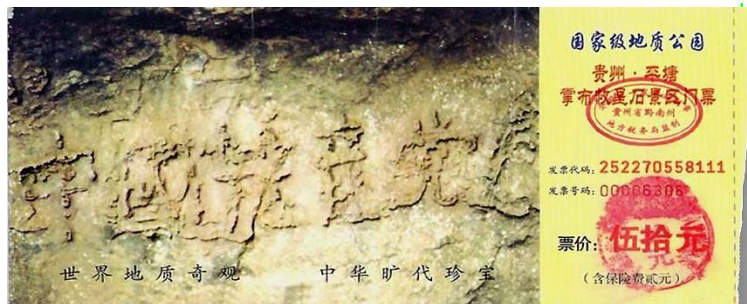 中國共产党亡
世界地质奇观 中华旷代珍宝
国家级地质公园
贵州·平塘
掌布救星石景区门票
贵州省黔南州
地方税务局监制
发票代码: 252270558111
发票号码:
票价: 伍拾元
(含保险费贰元)